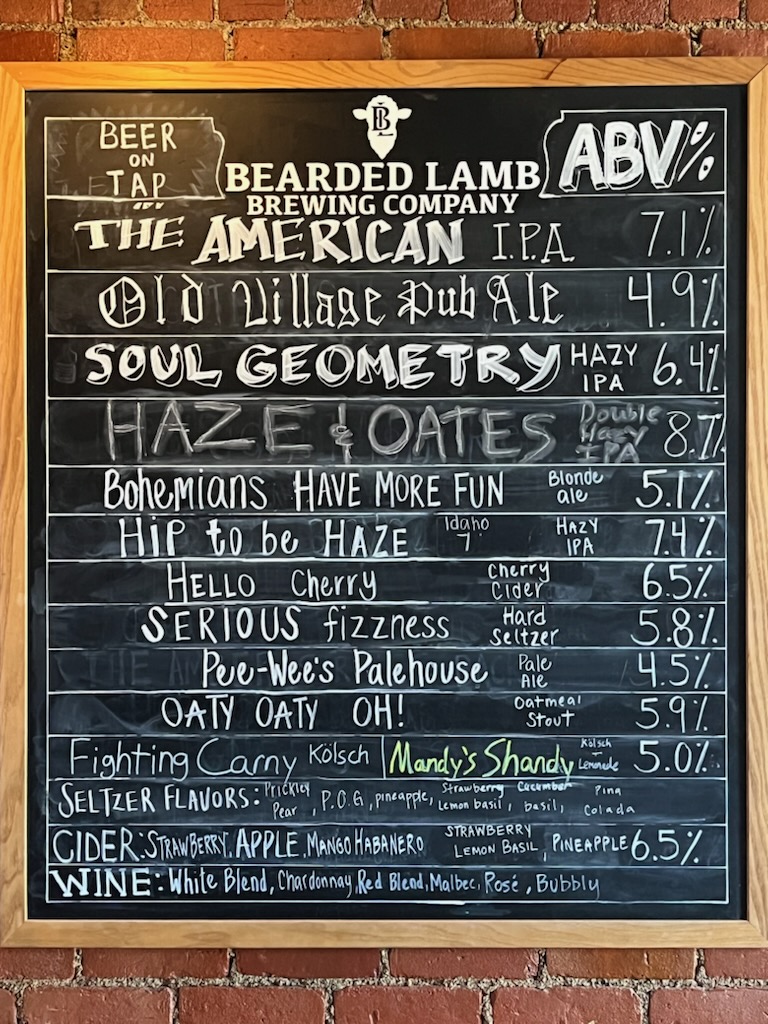 BEER
ON
TAP
BL
BEARDED LAMB
BREWING COMPANY
ABV%
THE AMERICAN I.P.A. 7.1%
Old Village Pub Ale 4.9%
SOUL GEOMETRY HAZY IPA 6.4%
HAZE & OATES Double Hazy IPA 8.7%
Bohemians HAVE MORE FUN Blonde ale 5.1%
HiP to be HAZE Idaho 7 HAZY IPA 7.4%
HELLO Cherry Cherry Cider 6.5%
SERIOUS fizzness Hard Seltzer 5.8%
Pee-Wee's Palehouse Pale Ale 4.5%
OATY OATY OH! Oatmeal Stout 5.9%
Fighting Carny Kölsch Mandy's Shandy Kölsch + Lemonade 5.0%
SELTZER FLAVORS: Prickley Pear, P.O.G, pineapple, Strawberry Lemon basil, Cucumber basil, Pina Colada
CIDER: STRAWBERRY, APPLE, MANGO HABANERO STRAWBERRY LEMON BASIL, PINEAPPLE 6.5%
WINE: White Blend, Chardonnay, Red Blend, Malbec, Rosé, Bubbly